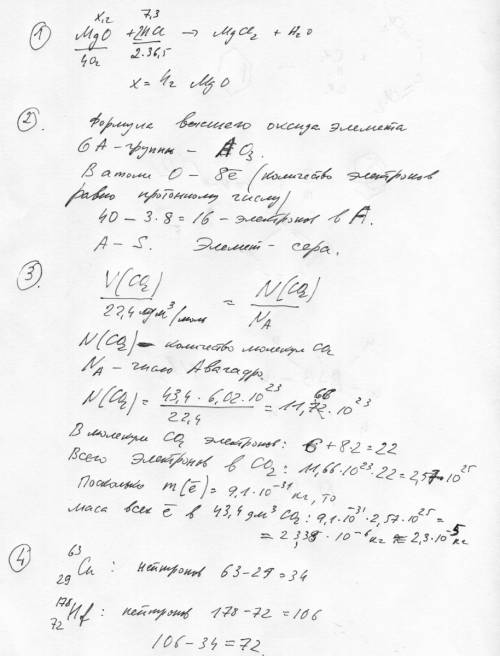 x г 7,3
① MgO + 2HCl → MgCl₂ + H₂O
40г 2·36,5
x = 4г MgO
②. Формула высшего оксида элемета
6А-группы - АO₃.
В атоме О - 8ē (количество электронов
равно протонному числу)
40 - 3·8 = 16 - электронов в А.
А - S. Элемет - сера.
③ V(CO₂) / 22,4 дм³/моль = N(CO₂) / N_A
N(CO₂) - количество молекул CO₂
N_A - число Авагадро.
N(CO₂) = 43,4 · 6,02·10²³ / 22,4 = 11,66·10²³
В молекуле CO₂ электронов: 6+8·2=22
Всего электронов в CO₂: 11,66·10²³·22 = 2,57·10²⁵
Поскольку m(ē) = 9,1·10⁻³¹ кг, то
маса всех ē в 43,4 дм³ CO₂: 9,1·10⁻³¹·2,57·10²⁵ =
= 23,38·10⁻⁶ кг ≈ 2,3·10⁻⁵ кг
④ ⁶³₂₉Cu : нейтронов 63-29=34
¹⁷⁸₇₂Hf : нейтронов 178-72=106
106-34=72.